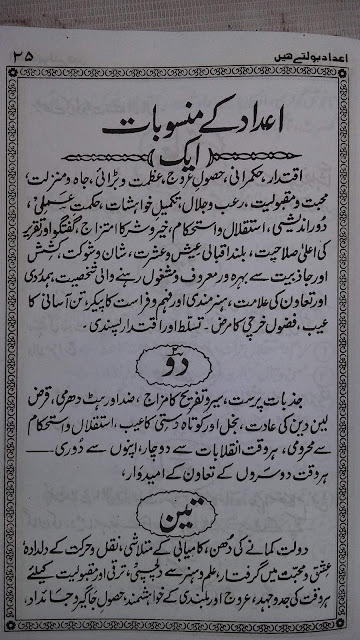 اعداد بولتے ہیں
۲۵
اعداد کے منسوبات
(ایک)
اقتدار، حکمرانی، حصول عروج، عظمت و بڑائی، جاہ و منزلت،
محبت و مقبولیت، رعب و جلال، تکمیل خواہشات، حکمت عملی،
دور اندیشی، استقلال و استحکام، خیر و شر کا امتزاج، گفتگو اور تقریر
کی اعلیٰ صلاحیت، بلند اقبالی، عیش و عشرت، شان و شوکت، کشش
اور جاذبیت سے بہرہ ور معروف و مشغول رہنے والی شخصیت، ہمدردی
اور تعاون کی علامت، ہنرمندی اور فہم و فراست کا پیکر، تن آسانی کا
عیب، فضول خرچی کا مرض۔ تسلط اور اقتدار پسندی۔
دو
جذبات پرست، سیر و تفریح کا مزاج، ضد اور ہٹ دھرمی، قرض
لین دین کی عادت، بخل اور کوتاہ دستی کا عیب، استقلال و استحکام
سے محرومی، ہر وقت انقلابات سے دوچار، اپنوں سے دُوری۔
ہر وقت دوسروں کے تعاون کے امیدوار،
تین
دولت کمانے کی دُھن، کامیابی کے متلاشی، نقل و حرکت کے دلدادہ
عشق و محبت میں گرفتار، علم و ہنر سے دلچسپی، ترقی اور مقبولیت کیلئے
ہر وقت کی جد و جہد، عروج اور بلندی کے خواہشمند، حصول جاگیر و جائداد،